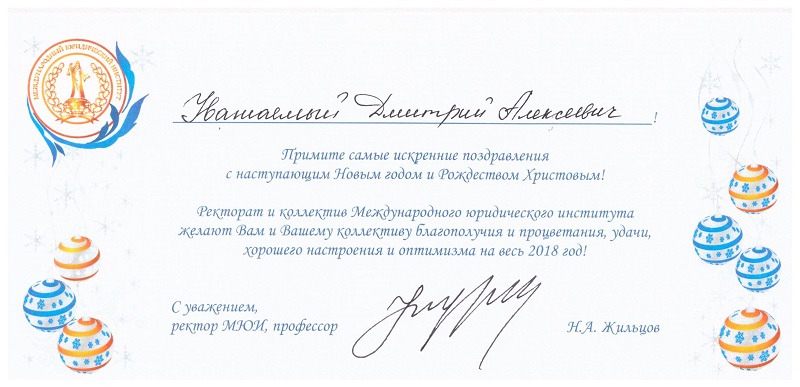 МЕЖДУНАРОДНЫЙ ЮРИДИЧЕСКИЙ ИНСТИТУТ
Уважаемый Дмитрий Алексеевич!
Примите самые искренние поздравления
с наступающим Новым годом и Рождеством Христовым!
Ректорат и коллектив Международного юридического института
желают Вам и Вашему коллективу благополучия и процветания, удачи,
хорошего настроения и оптимизма на весь 2018 год!
С уважением,
ректор МЮИ, профессор
Н.А. Жильцов